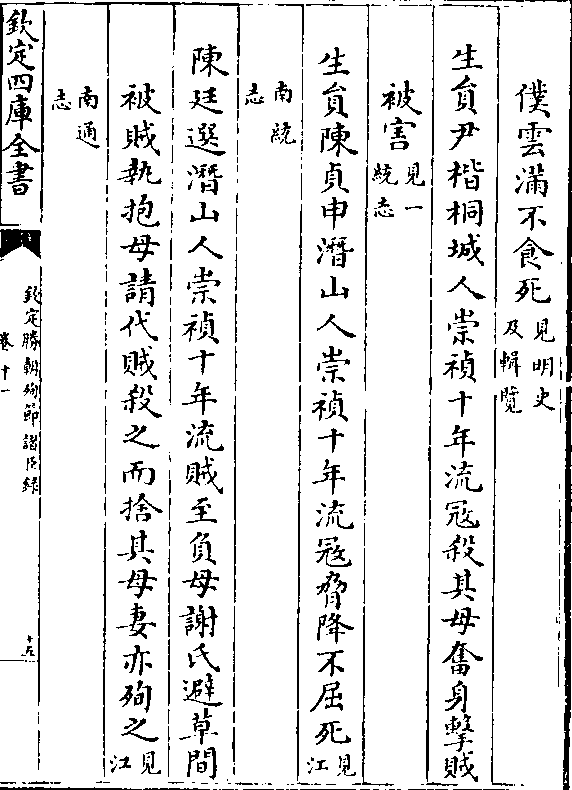 僕雲滿不食死見明史及輯覽
生員尹楷桐城人崇禎十年流寇殺其母奮身擊賊
被害見一統志
生員陳貞申潛山人崇禎十年流寇脅降不屈死見江
南統志
陳廷選潛山人崇禎十年流賊至負母謝氏避草間
被賊執抱母請代賊殺之而捨其母妻亦殉之見江
南通志
欽定四庫全書
欽定勝朝殉節諸臣錄
卷十一